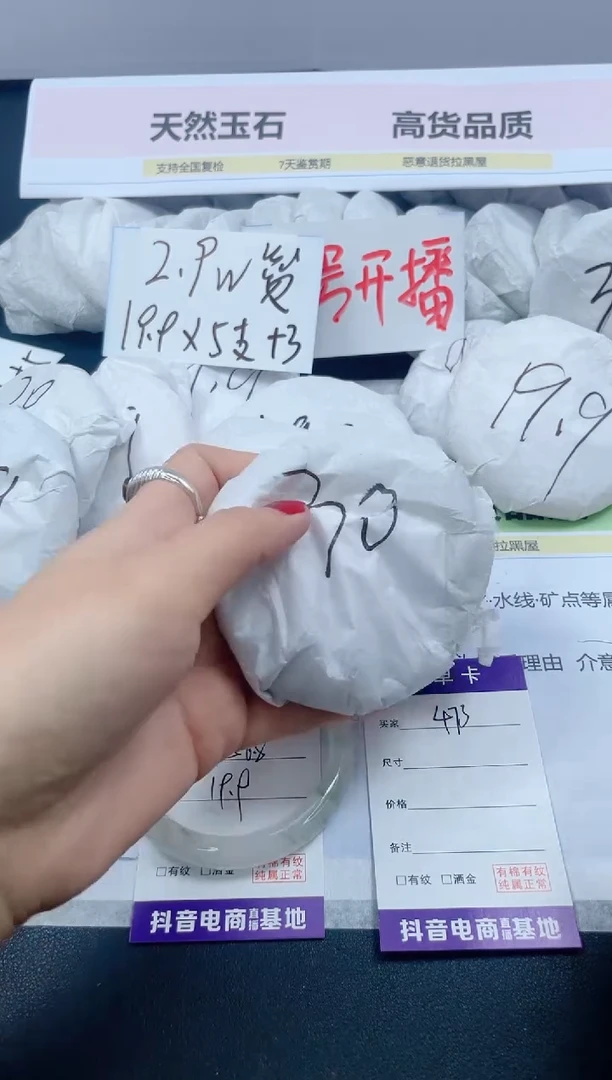 天然玉石 高货品质
支持全国复检 7天鉴赏期 恶意退货拉黑屋
2.9W
19.9X5支+3
号开播
19.9
30
拉黑屋
水线·矿点等
理由 介意
单卡
买家 473
尺寸
价格
备注
□有纹 □洒金
有棉有纹
纯属正常
抖音电商直播基地
19.9
□有纹 □洒金
有棉有纹
纯属正常
抖音电商直播基地